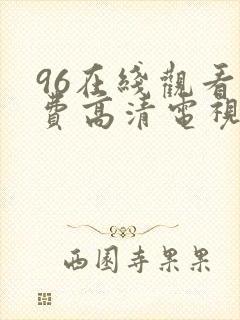 96在綫觀看
費高清電視
西園寺果果